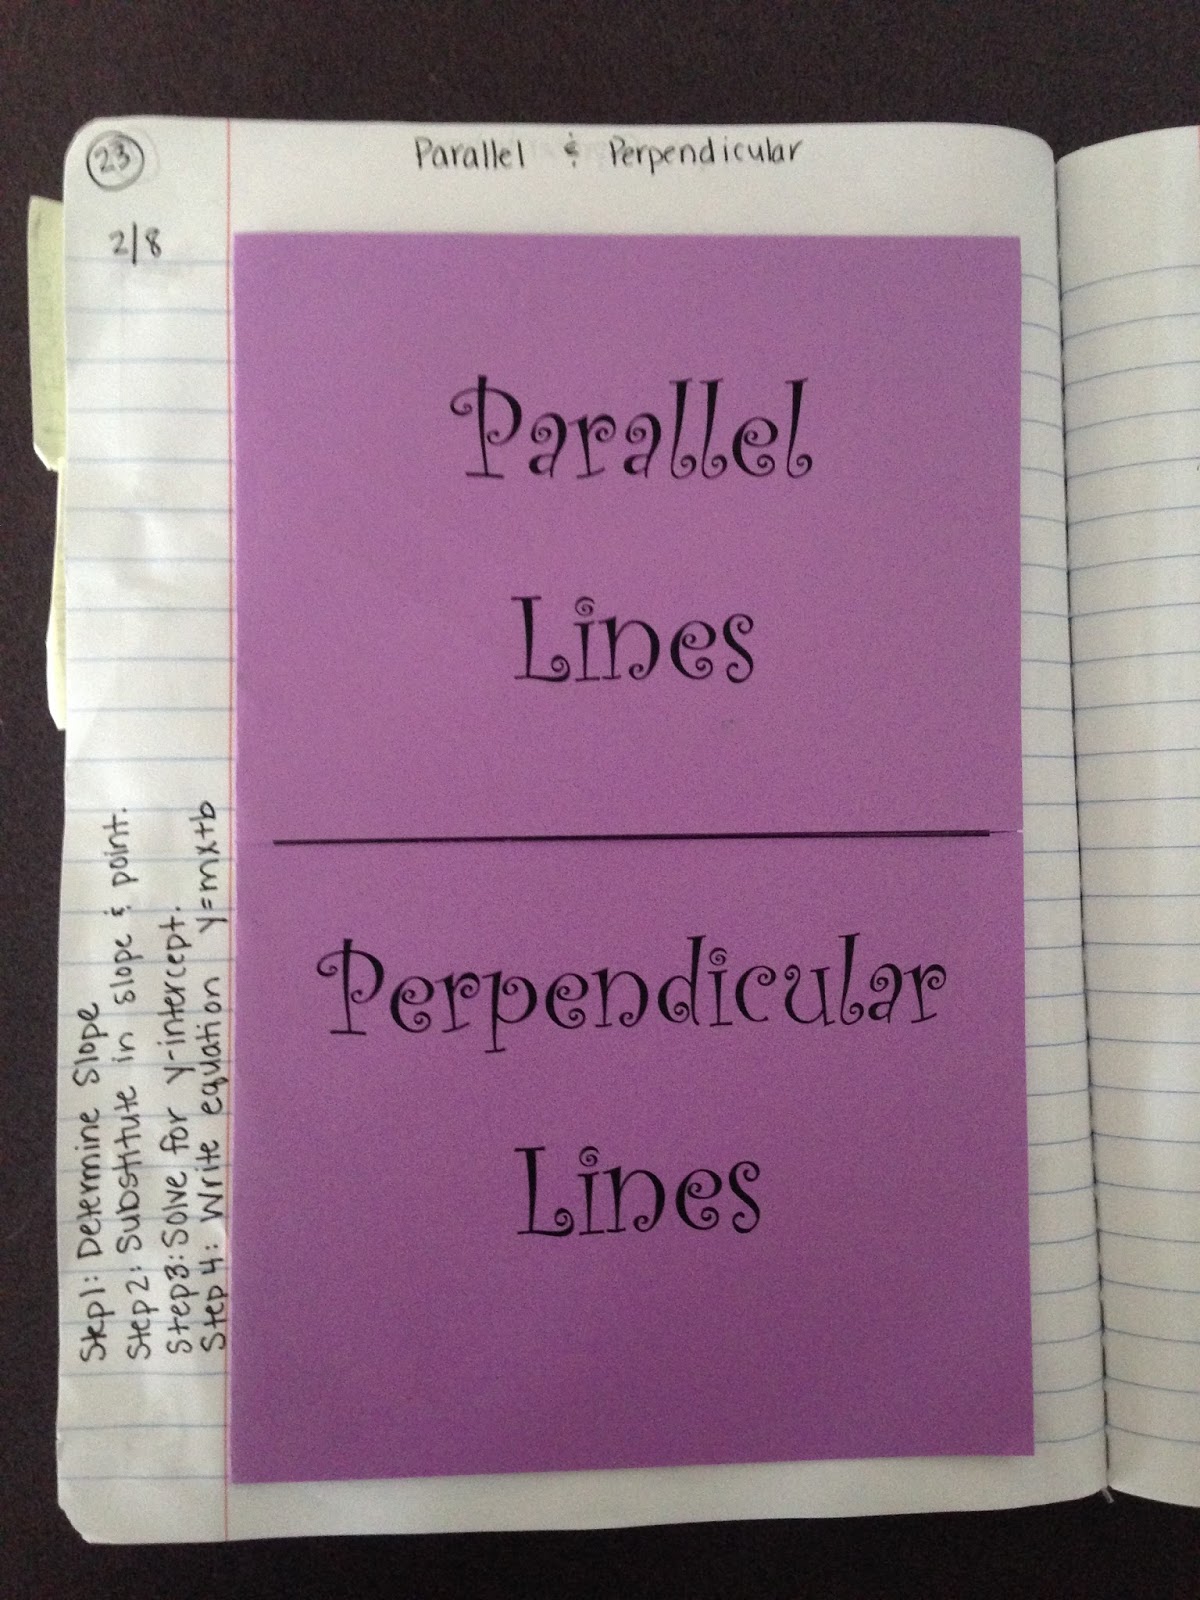 23
Parallel & Perpendicular
2/8
Parallel
Lines
Perpendicular
Lines
Step1: Determine Slope
Step2: Substitute in slope & point.
Step3: Solve for y-intercept.
Step 4: Write equation y=mx+b